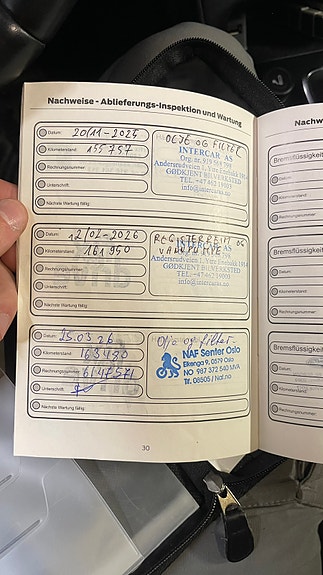 Nachweise - Ablieferungs-Inspektion und Wartung
Datum: 20/11-2025
Kilometerstand: 155 757
Rechnungsnummer:
Unterschrift:
Nächste Wartung fällig:
OLJE OG FILTER
INTERCAR AS
Org. nr. 919 668 798
Andersrudveien 1, Ytre Enebakk 1914
GODKJENT BILVERKSTED
TEL. +47 462 19003
info@intercar.as
Datum: 12/02-2026
Kilometerstand: 161 950
Rechnungsnummer:
Unterschrift:
Nächste Wartung fällig:
REGISTERREIM OG
VANNPUMPE
INTERCAR AS
Andersrudveien 1, Ytre Enebakk 1914
GODKJENT BILVERKSTED
TEL. +47 462 19003
info@intercar.as
Datum: 25.03 26
Kilometerstand: 163490
Rechnungsnummer: 6147571
Unterschrift:
Nächste Wartung fällig:
Olje og filter
NAF Senter Oslo
Eikenga 9, 0579 Oslo
NO 987 372 540 MVA
Tlf. 08505 / Naf.no
30
Nachw
Bremsflüssigkeit
Datum:
Kilometerstand:
Rechnungsnummer:
Bremsflüssigkeit
Datum:
Kilometerstand:
Rechnungsnummer:
Bremsflüssigkeit
Datum:
Kilometerstand:
Rechnungsnummer: